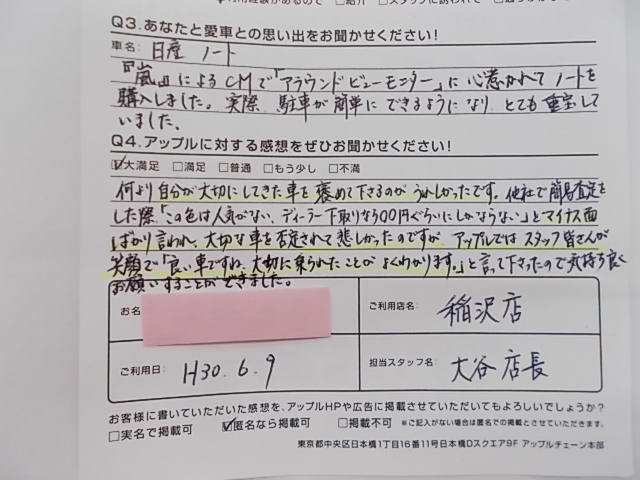 □紹介 □スタッフに誘われて
Q3.あなたと愛車との思い出をお聞かせください!
車名: 日産 ノート
『嵐』によるCMで「アラウンドビューモニター」に心惹かれて ノートを
購入しました。実際、駐車が簡単にできるようになり、とても重宝して
いました。
Q4.アップルに対する感想をぜひお聞かせください!
☑大満足 □満足 □普通 □もう少し □不満
何より自分が大切にしてきた車を褒めて下さるのが うれしかったです。他社で簡易査定を
した際「この色は人気がない、ディーラー下取りなら00円ぐらいにしかならない」とマイナス面
ばかり言われ、大切な車を否定されて悲しかったのですが、アップルでは スタッフ皆さんが
笑顔で「良い車ですね、大切に乗られたことが よくわかります。」と言って下さったので気持ち良く
お願いすることができました。
お名
ご利用店名: 稲沢店
ご利用日: H30.6.9
担当スタッフ名: 大谷店長
お客様に書いていただいた感想を、アップルHPや広告に掲載させていただいてもよろしいでしょうか?
□実名で掲載可 ☑匿名なら掲載可 □掲載不可 ※ご記入がない場合は匿名での掲載とさせていただきます。
東京都中央区日本橋1丁目16番11号日本橋Dスクエア9F アップルチェーン本部